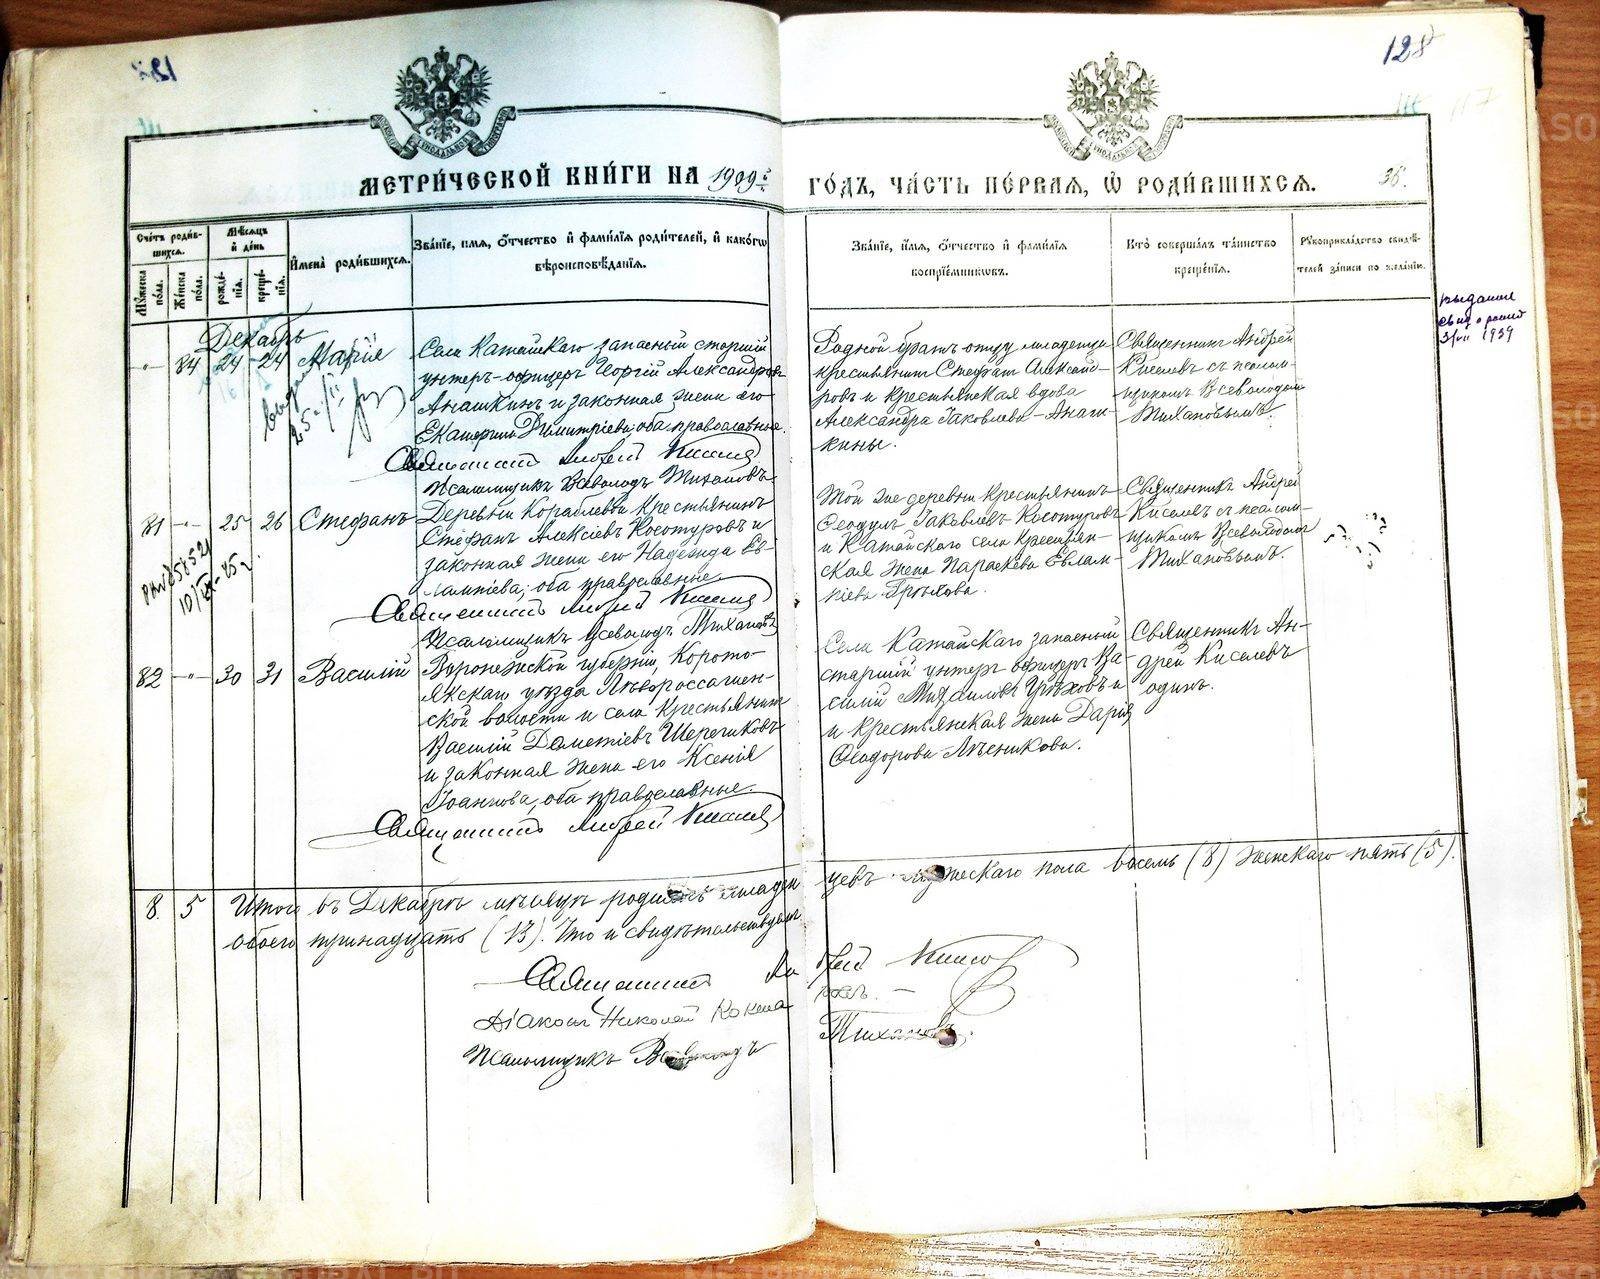 128
МЕТРИ́ЧЕСКОЙ КНИ́ГИ НА 1909й
ГО́ДЪ, ЧА́СТЬ ПЕ́РВАЯ, Ѡ РОДИ́ВШИХСЯ.
36.
Сче́тъ роди́в-
шихся.
Му́жеска по́ла.
Же́нска по́ла.
Мѣ́сяцъ и́ де́нь
рожде́-
нія.
креще́-
нія.
И҆мена̀ роди́вшихся.
Зва́ніе, и҆мя, ѻ҆́тчество и҆ фами́лія роди́телей, и҆ како́гѡ
вѣроисповѣ́данія.
Зва́ніе, и҆́мя, ѻ҆́тчество и҆ фами́лія
воспріе́мникѡвъ.
Кто̀ соверша́лъ та́инство
креще́нія.
Рꙋкоприкла́дство свидѣ́-
телей за́писи по жела́нію.
Декабрь
-"- 84 24 24 Марія
Села Катайскаго запасный старшій
унтеръ-офицеръ Георгій Александровъ
Анашкинъ и законная жена его
Екатерина Димитріева, оба православные.
Священникъ Андрей Киселев
Псаломщикъ Всеволодъ Тихановъ
Родной братъ отцу младенца
крестьянинъ Стефанъ Александ-
ровъ и крестьянская вдова
Александра Іаковлева Анаш-
кины.
Священникъ Андрей
Киселевъ съ псалом-
щикомъ Всеволодомъ
Тихановымъ.
81 -"- 25 26 Стефанъ
Деревни Кораблевой крестьянинъ
Стефанъ Алексіевъ Косотуровъ и
законная жена его Надежда Ев-
лампіева, оба православные.
Священникъ Андрей Киселев
Псаломщикъ Всеволодъ Тихановъ
Той же деревни крестьянинъ
Феодулъ Іаковлевъ Косотуровъ
и Катайскаго села крестьян-
ская жена Параскева Евлам-
піева Грѣхова.
Священникъ Андрей
Киселевъ съ псалом-
щикомъ Всеволодомъ
Тихановымъ.
82 -"- 30 31 Василій
Воронежской губерніи, Корото-
якскаго уѣзда
ской волости и села крестьянинъ
Василій Дометіевъ
и законная жена его Ксенія
Іоаннова, оба православные.
Священникъ Андрей Киселев
Села Катайскаго запасный
старшій унтеръ офицеръ Ва-
силій Михаиловъ Грѣховъ
и крестьянская жена Дарія
Феодорова
Священникъ Ан-
дрей Киселевъ
одинъ.
выдана
3/VII 1939
8. 5 Итого въ Декабрѣ мѣсяцѣ родилось младен
цевъ мужескаго пола восемь (8) женскаго пять (5).
обоего тринадцать (13). Что и свидѣтельствуемъ
Священникъ Андрей Киселев
Діаконъ Николай
Псаломщикъ Всеволодъ Тихановъ.